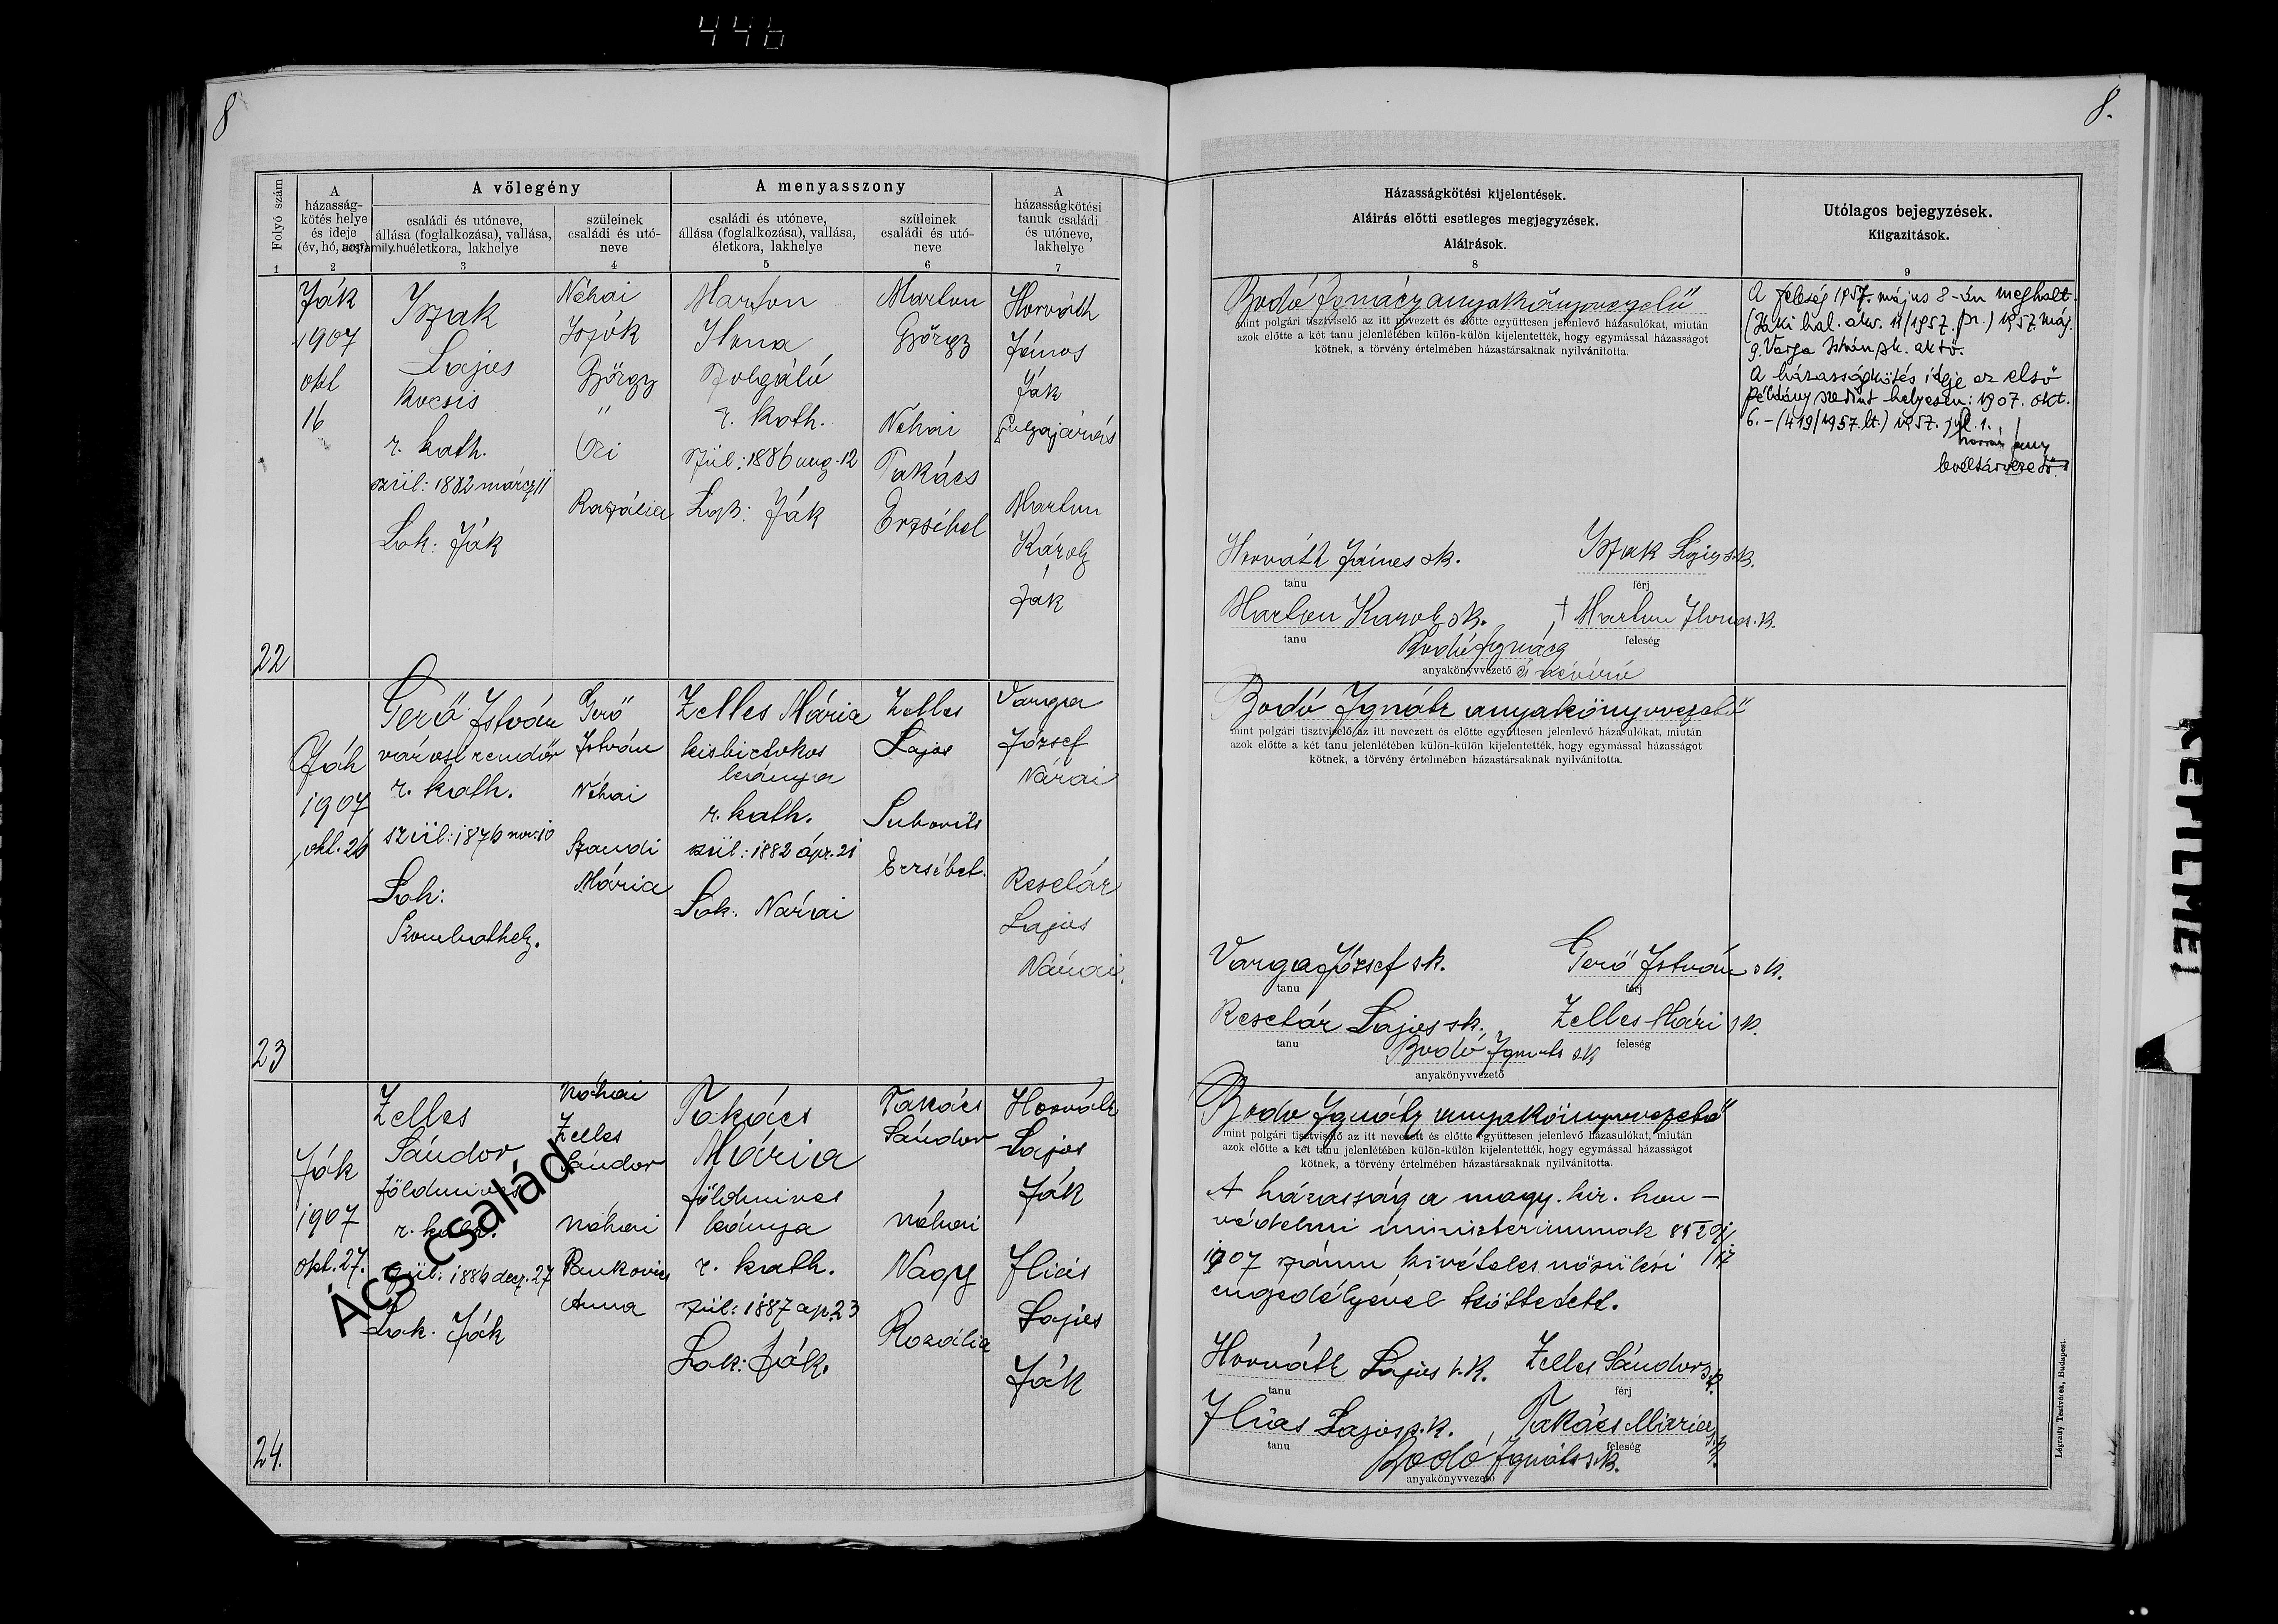 446
8
8.
Folyó szám
A házasság-
kötés helye
és ideje
(év, hó, nap)
acsfamily.hu
A vőlegény
családi és utóneve,
állása (foglalkozása), vallása,
életkora, lakhelye
szüleinek
családi és utó-
neve
A menyasszony
családi és utóneve,
állása (foglalkozása), vallása,
életkora, lakhelye
szüleinek
családi és utó-
neve
A
házasságkötési
tanuk családi
és utóneve,
lakhelye
1 2 3 4 5 6 7
Ják
1907
okt
16
Iszak
Lajos
kocsis
r. kath.
szül: 1882 márcz 11
Lak: Ják
Néhai
György
Rozália
Marton
Ilona
Szolgáló
r. kath.
Szül: 1886 aug. 12
Lak: Ják
Marton
György
Néhai
Takács
Erzsébet
Horváth
János
Ják
Marton
Károly
Ják
22
Ják
1907
okt. 26
Gerő István
városi rendőr
r. kath.
szül: 1876 nov. 10
Lak:
Szombathely.
Gerő
István
Néhai
Szandi
Mária
Zelles Mária
kisbirtokos
leánya
r. kath.
szül: 1882 ápr. 21
Lak: Nárai
Zelles
Lajos
Erzsébet.
Varga
József
Nárai
Resetár
Lajos
Nárai.
23
Ják
1907
okt. 27.
Zelles
Sándor
földmives
r. kath.
szül: 1886 decz. 27
Lak. Ják
Néhai
Zelles
Sándor
néhai
Anna
Takács
Mária
földmives
leánya
r. kath.
szül: 1887 ap. 23
Lak: Ják.
Takács
Sándor
néhai
Nagy
Rozália
Horváth
Lajos
Ják
Iliás
Lajos
Ják
24.
Ács család
Házasságkötési kijelentések.
Aláirás előtti esetleges megjegyzések.
Aláirások.
8
Utólagos bejegyzések.
Kiigazitások.
9
Bodó Ignácz anyakönyvvezető
mint polgári tisztviselő az itt nevezett és előtte együttesen jelenlevő házasulókat, miután
azok előtte a két tanu jelenlétében külön-külön kijelentették, hogy egymással házasságot
kötnek, a törvény értelmében házastársaknak nyilvánitotta.
A feleség 1957. május 8-án meghalt.
(Jáki hal. akv. 11/1957. pr.) 1957. máj.
9. Varga István
A házasságkötés ideje az első
példány szerint helyesen: 1907. okt.
6. - (419/1957. lt.) 1957. júl. 1.
levéltárvezető
Horváth János sk.
tanu
Iszak Lajos sk.
férj
Marton Karoly sk.
tanu
Marton Ilona s.k.
feleség
Bodó Ignácz
anyakönyvvezető
Bodó Ignátz anyakönyvvezető
mint polgári tisztviselő az itt nevezett és előtte együttesen jelenlevő házasulókat, miután
azok előtte a két tanu jelenlétében külön-külön kijelentették, hogy egymással házasságot
kötnek, a törvény értelmében házastársaknak nyilvánitotta.
Varga József sk.
tanu
Gerő István sk.
férj
Resetár Lajos sk.
tanu
Zelles Mári sk.
feleség
Bodó Ignátz sk
anyakönyvvezető
Bodó Ignátz anyakönyvvezető
mint polgári tisztviselő az itt nevezett és előtte együttesen jelenlevő házasulókat, miután
azok előtte a két tanu jelenlétében külön-külön kijelentették, hogy egymással házasságot
kötnek, a törvény értelmében házastársaknak nyilvánitotta.
A házasság a magy. kir. hon-
védelmi ministeriumnak
1907 számu kivételes nősülési
engedélyével köttetett.
Horváth Lajos s.k.
tanu
Zelles Sándor s.k.
férj
Iliás Lajos s.k.
tanu
Takács Mária s.k.
feleség
Bodó Ignátz sk.
anyakönyvvezető
Légrády Testvérek, Budapest.